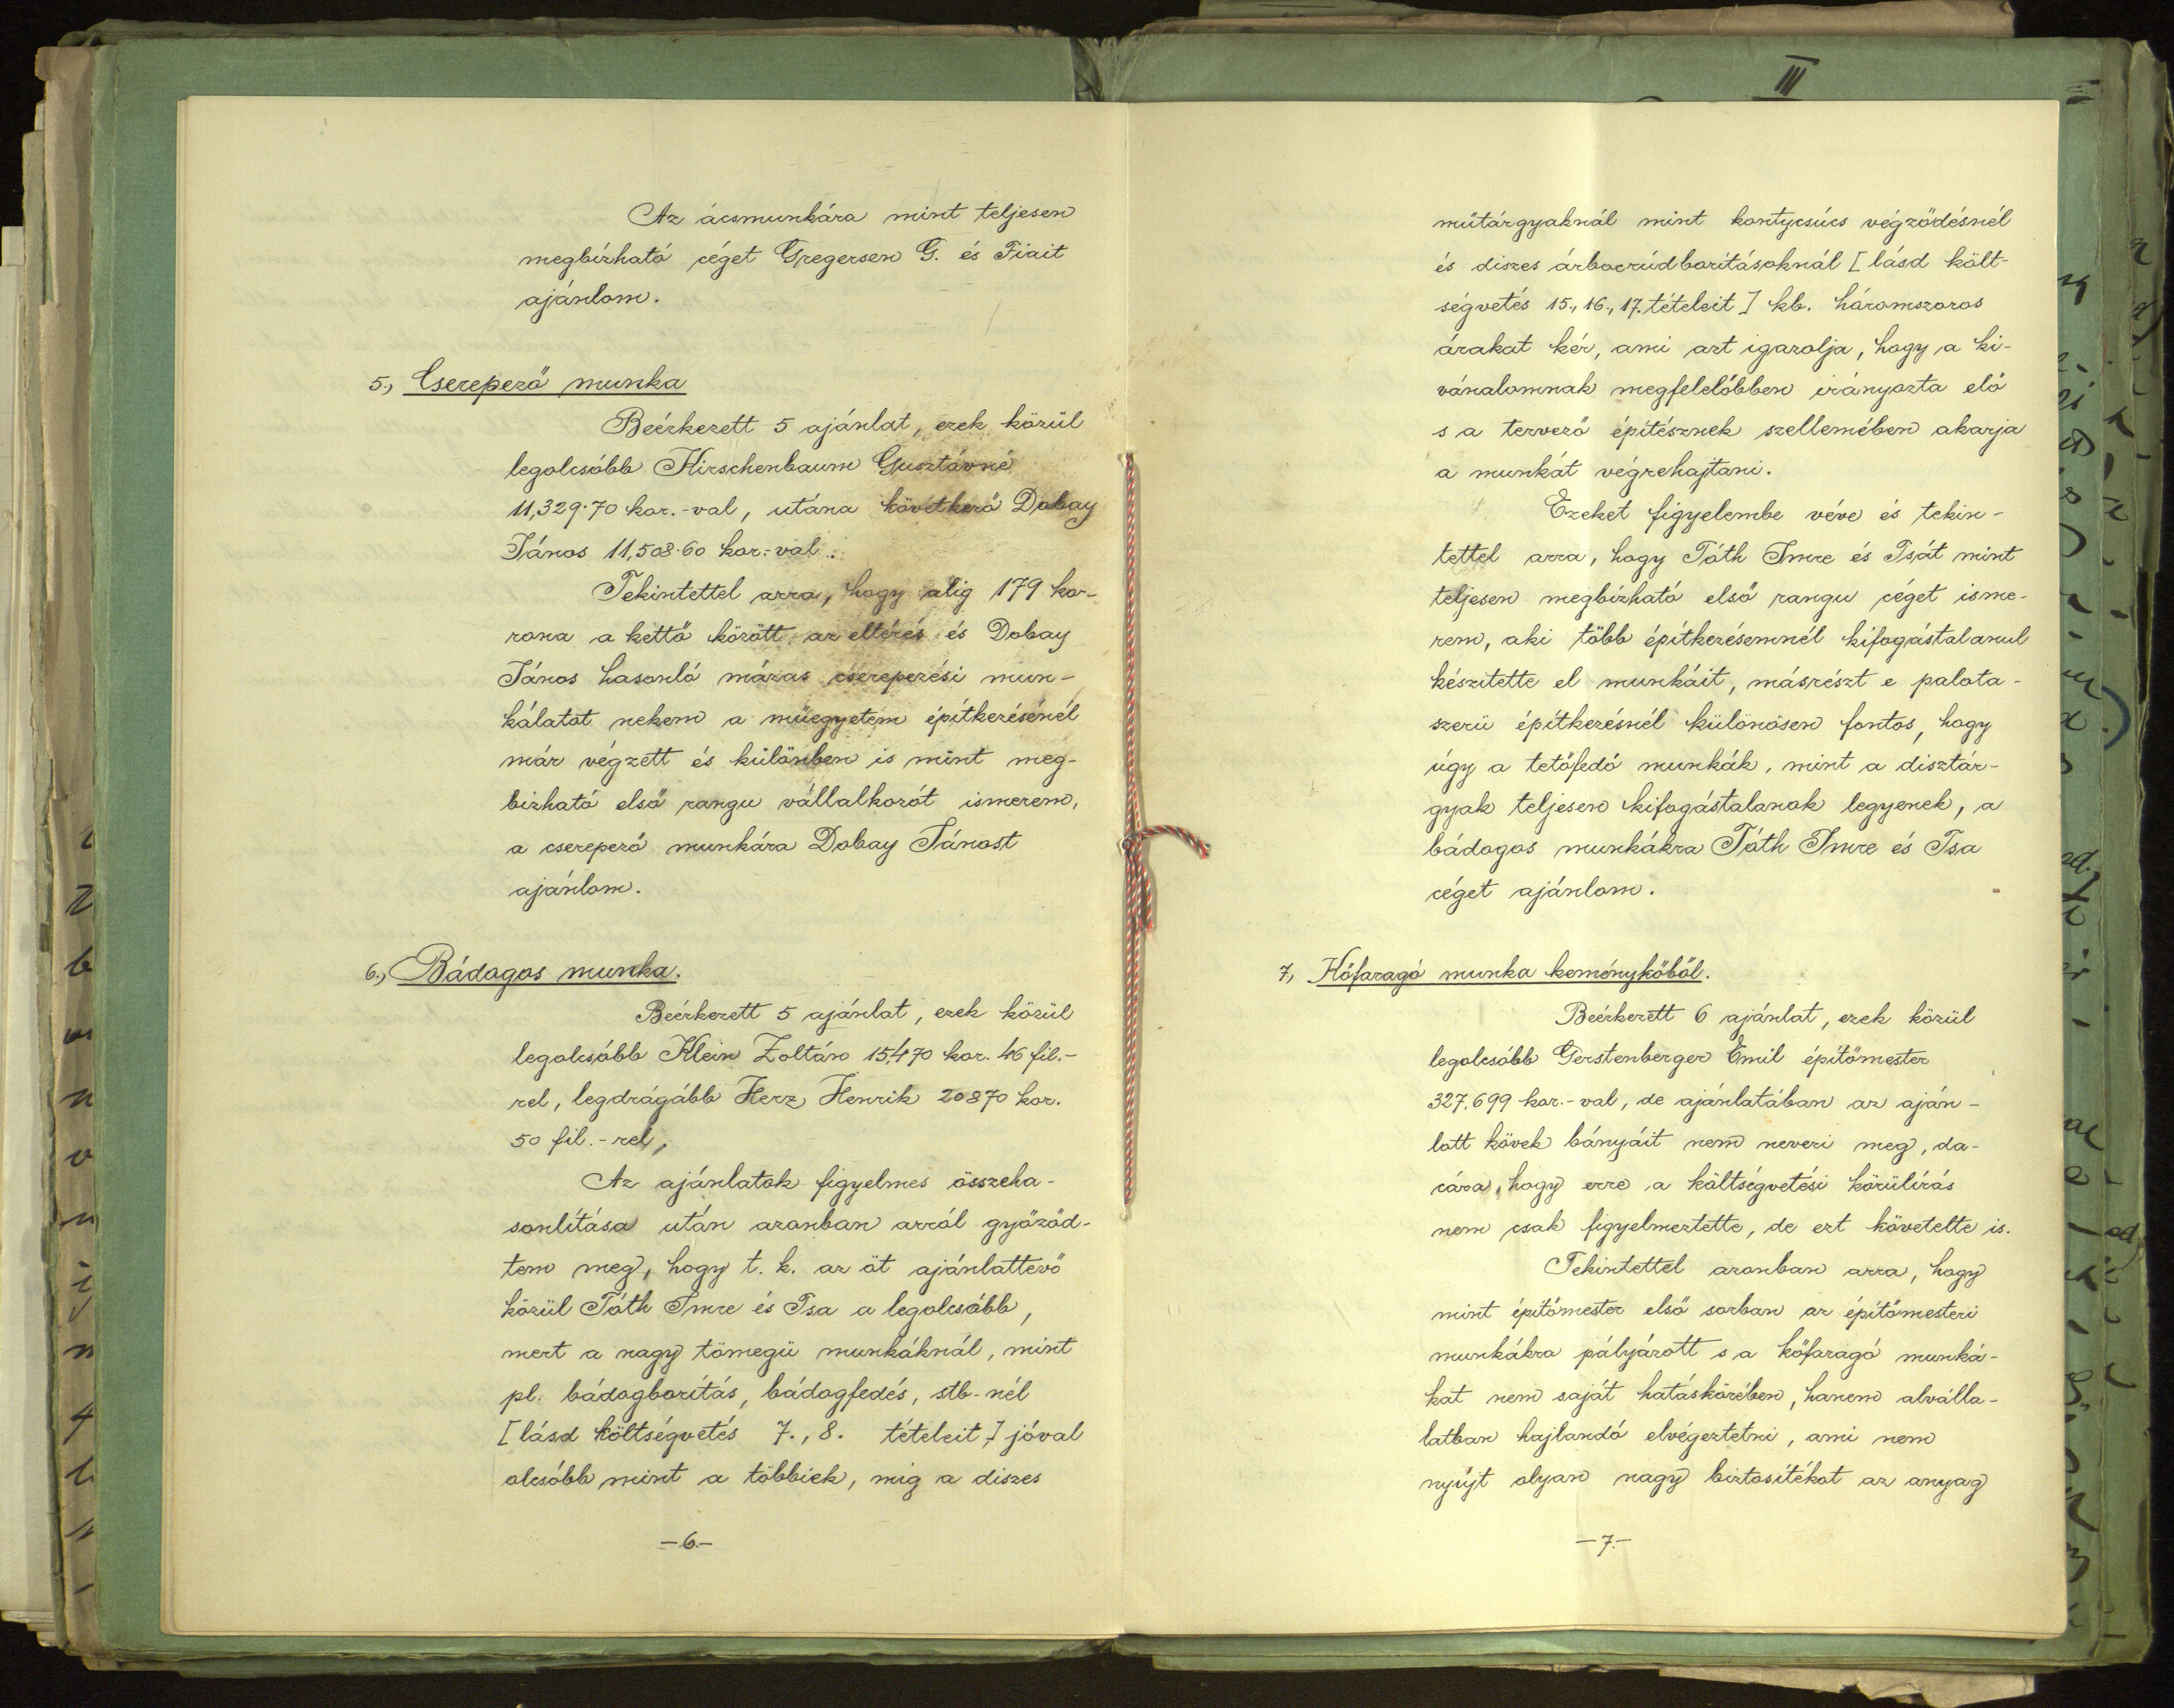 III
Az ácsmunkára mint teljesen
megbízható céget Gregersen G. és Fiait
ajánlom.
5., Cserepező munka
Beérkezett 5 ajánlat, ezek közül
legolcsóbb Hirschenbaum Gusztávné
11,329·70 kor.-val, utána következő Dobay
János 11,508·60 kor.-val.
Tekintettel arra, hogy alig 179 ko-
rona a kettő között az eltérés és Dobay
János hasonló mázas cserepezési mun-
kálatot nekem a műegyetem építkezésénél
már végzett és különben is mint meg-
bizható első rangu vállalkozót ismerem,
a cserepező munkára Dobay Jánost
ajánlom.
6., Bádogos munka.
Beérkezett 5 ajánlat, ezek közül
legolcsóbb Klein Zoltán 15,470 kor. 46 fil.-
rel, legdrágább Herz Henrik 20870 kor.
50 fil.-rel,
Az ajánlatok figyelmes összeha-
sonlítása után azonban arról győződ-
tem meg, hogy t. k. az öt ajánlattevő
közül Tóth Imre és Tsa a legolcsóbb,
mert a nagy tömegü munkáknál, mint
pl. bádogborítás, bádogfedés, stb-nél
[lásd költségvetés 7., 8. tételeit,] jóval
olcsóbb mint a többiek, mig a diszes
-6.-
műtárgyaknál mint kontycsúcs végződésnél
és diszes árbocrúdboritásoknál [lásd költ-
ségvetés 15., 16., 17. tételeit] kb. háromszoros
árakat kér, ami azt igazolja, hogy a ki-
vánalomnak megfelelőbben irányozta elő
s a tervező építésznek szellemében akarja
a munkát végrehajtani.
Ezeket figyelembe véve és tekin-
tettel arra, hogy Tóth Imre és Tsát mint
teljesen megbízható első rangu céget isme-
rem, aki több építkezésemnél kifogástalanul
készitette el munkáit, másrészt e palota-
szerü építkezésnél különösen fontos, hogy
úgy a tetőfedő munkák, mint a disztár-
gyak teljesen kifogástalanok legyenek, a
bádogos munkákra Tóth Imre és Tsa
céget ajánlom.
7, Kőfaragó munka keménykőből.
Beérkezett 6 ajánlat, ezek közül
legolcsóbb Gerstenberger Emil építőmester
327.699 kor.-val, de ajánlatában az aján-
lott kövek bányáit nem nevezi meg, da-
cára, hogy erre a költségvetési körülírás
nem csak figyelmeztette, de ezt követelte is.
Tekintettel azonban arra, hogy
mint építőmester első sorban az építőmesteri
munkákra pályázott s a kőfaragó munká-
kat nem saját hatáskörében, hanem alválla-
latban hajlandó elvégeztetni, ami nem
nyújt olyan nagy biztosítékot az anyag
-7.-